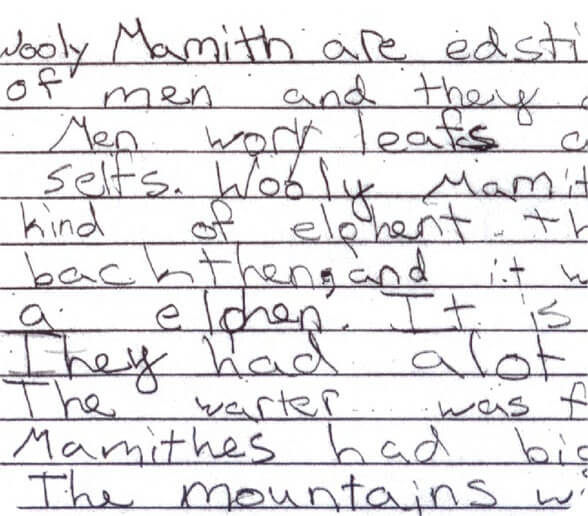 Wooly Mamith are edsti
of men and they
Men work leafs
selfs. Wooly Mamit
kind of elephent. th
back then, and it w
a elphen. It is
They had alot
The warter was f
Mamithes had big
The mountains wi